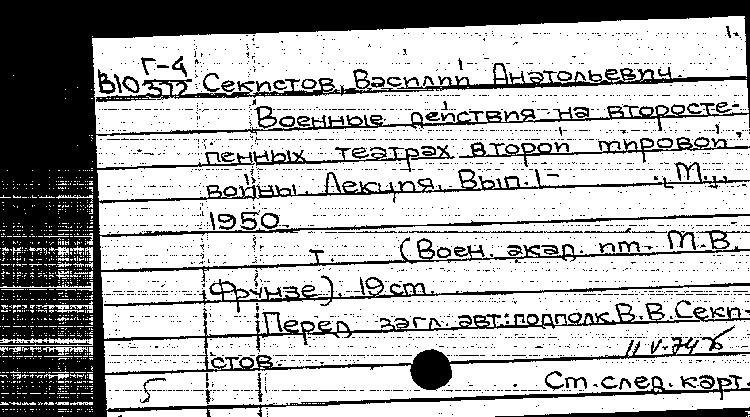 1.
Г-4
В10 372 Секистов, Василий Анатольевич.
Военные действия на второсте-
пенных театрах второй мировой
войны. Лекция. Вып. 1- М.,
1950.
т. (Воен. акад. им. М.В.
Фрунзе). 19 см.
Перед загл. авт.: подполк. В.В. Секи-
стов.
11 V-74
5
См. след. карт.